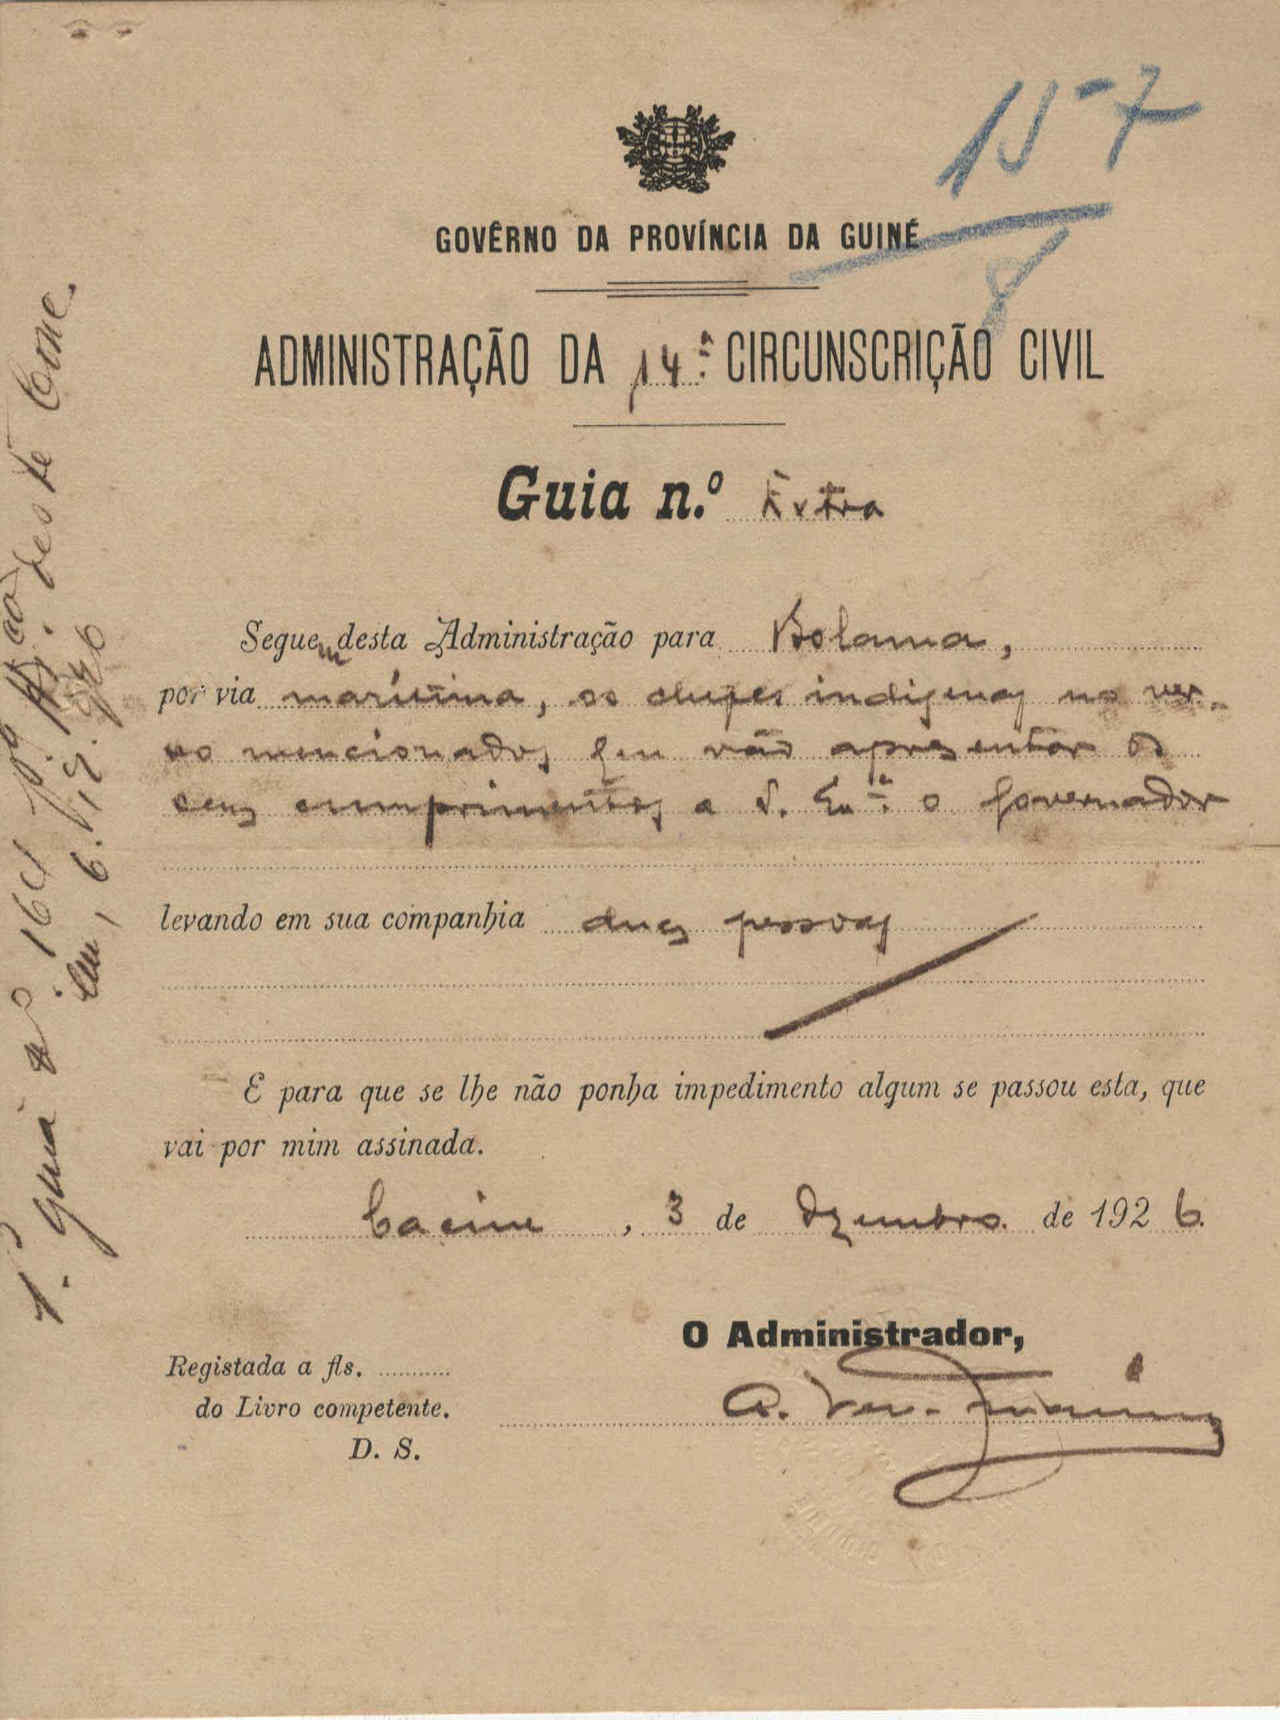 15-7
8
GOVÊRNO DA PROVÍNCIA DA GUINÉ
ADMINISTRAÇÃO DA 14ª CIRCUNSCRIÇÃO CIVIL
Guia n.º Extra
Seguem desta Administração para Bolama,
por via maritima, os chefes indigenas no ver-
so mencionados que vão apresentar os
seus cumprimentos a S. Exª o Governador
levando em sua companhia duas pessoas
E para que se lhe não ponha impedimento algum se passou esta, que
vai por mim assinada.
Cacine, 3 de Dezembro de 1926.
O Administrador,
Registada a fls. ..........
do Livro competente.
D. S.
A.
guia nº 164 desta
Em, 6.12.926